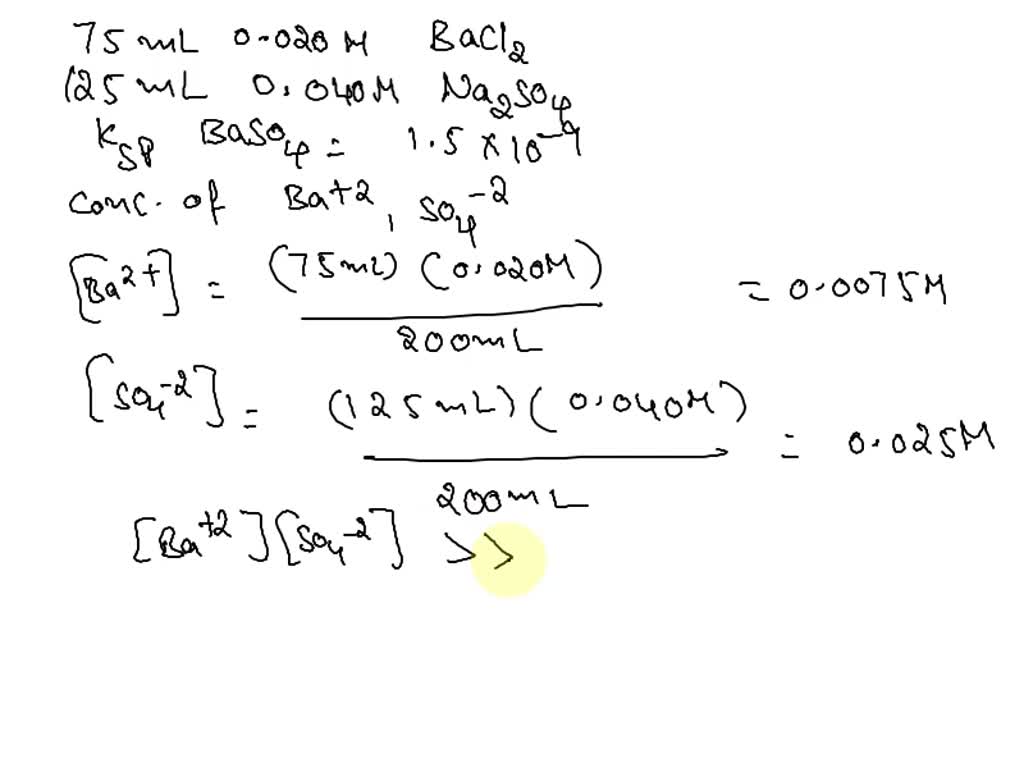 75 mL 0.020 M BaCl₂
125 mL 0.040M Na₂SO₄
Ksp BaSO₄ = 1.5 × 10⁻⁹
conc. of Ba⁺², SO₄⁻²
[Ba²⁺] = (75mL) (0.020M) / 200mL = 0.0075M
[SO₄⁻²] = (125mL) (0.040M) / 200mL = 0.025M
[Ba⁺²][SO₄⁻²] >>